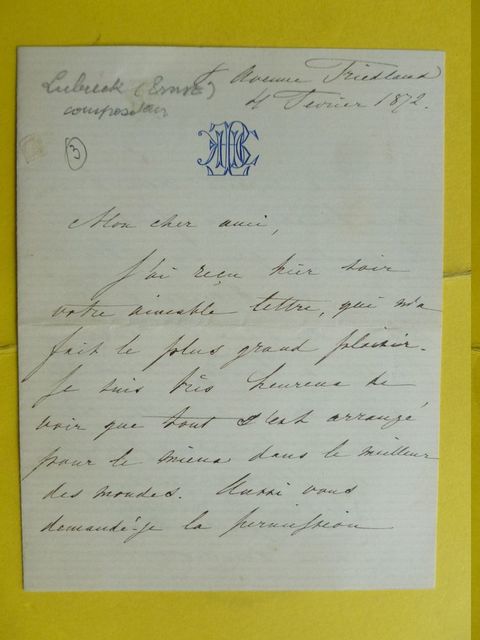 Lubeck (Ernst)
compositeur
3
Avenue Friedland
4 Février 1872.
Mon cher ami,
J'ai reçu hier soir
votre aimable lettre, qui m'a
fait le plus grand plaisir.
Je suis très heureux de
voir que tout s'est arrangé
pour le mieux dans le meilleur
des mondes. Aussi vous
demandé-je la permission